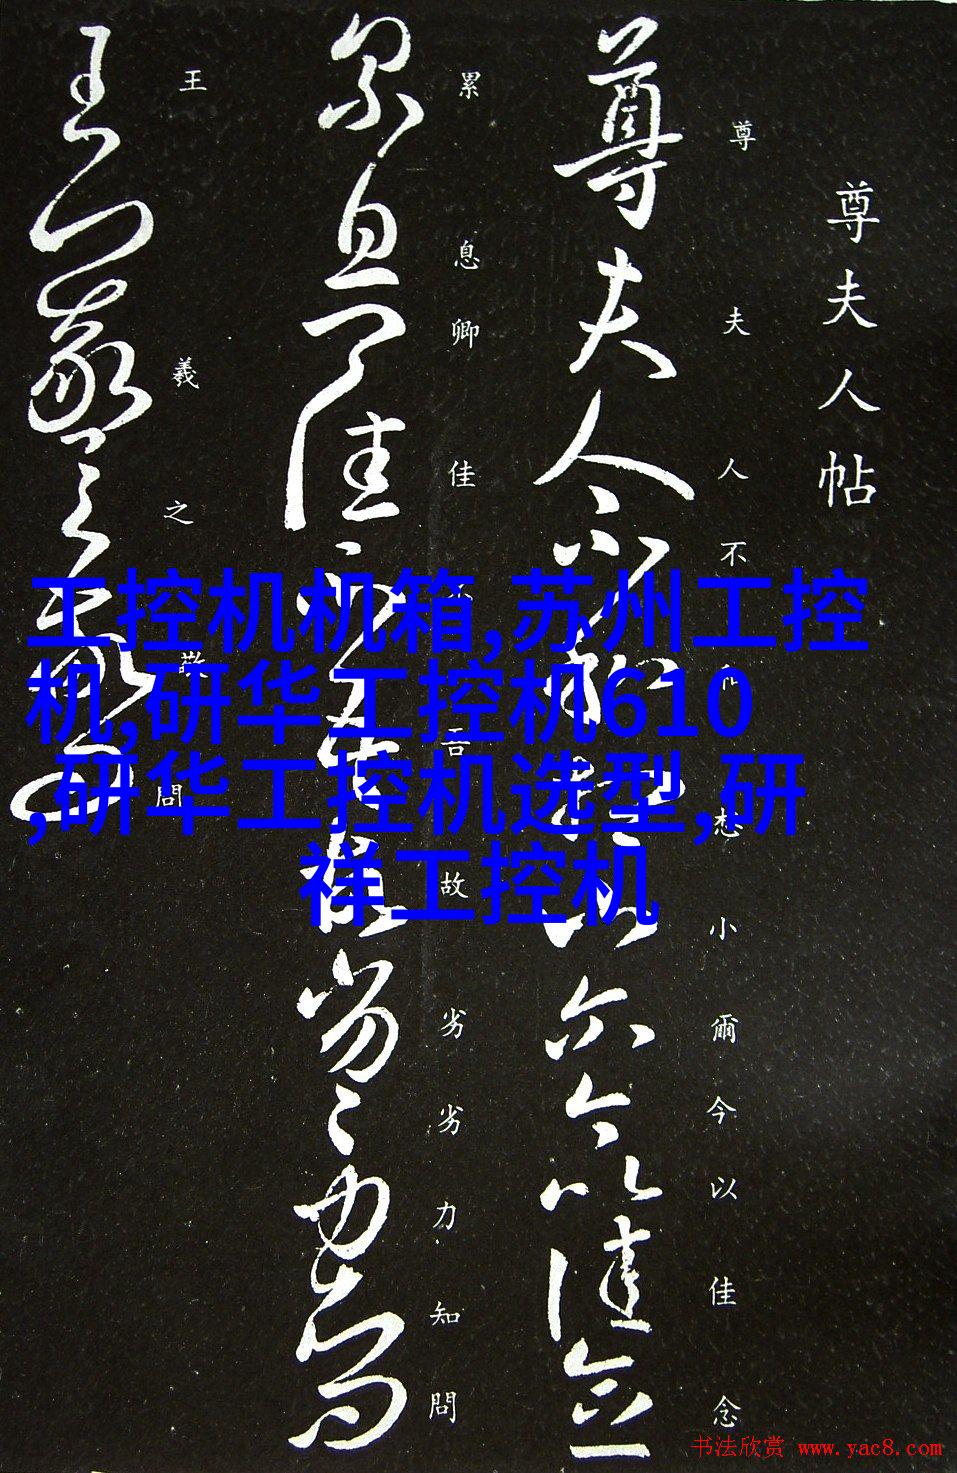 尊夫人帖
尊夫人不和想小爾今以佳念
累息卿佳不吾故劣劣力知問
王羲之敬問
工控机机箱,苏州工控
机,研华工控机610
,研华工控机选型,研
祥工控机
书法欣赏 www.yac8.com